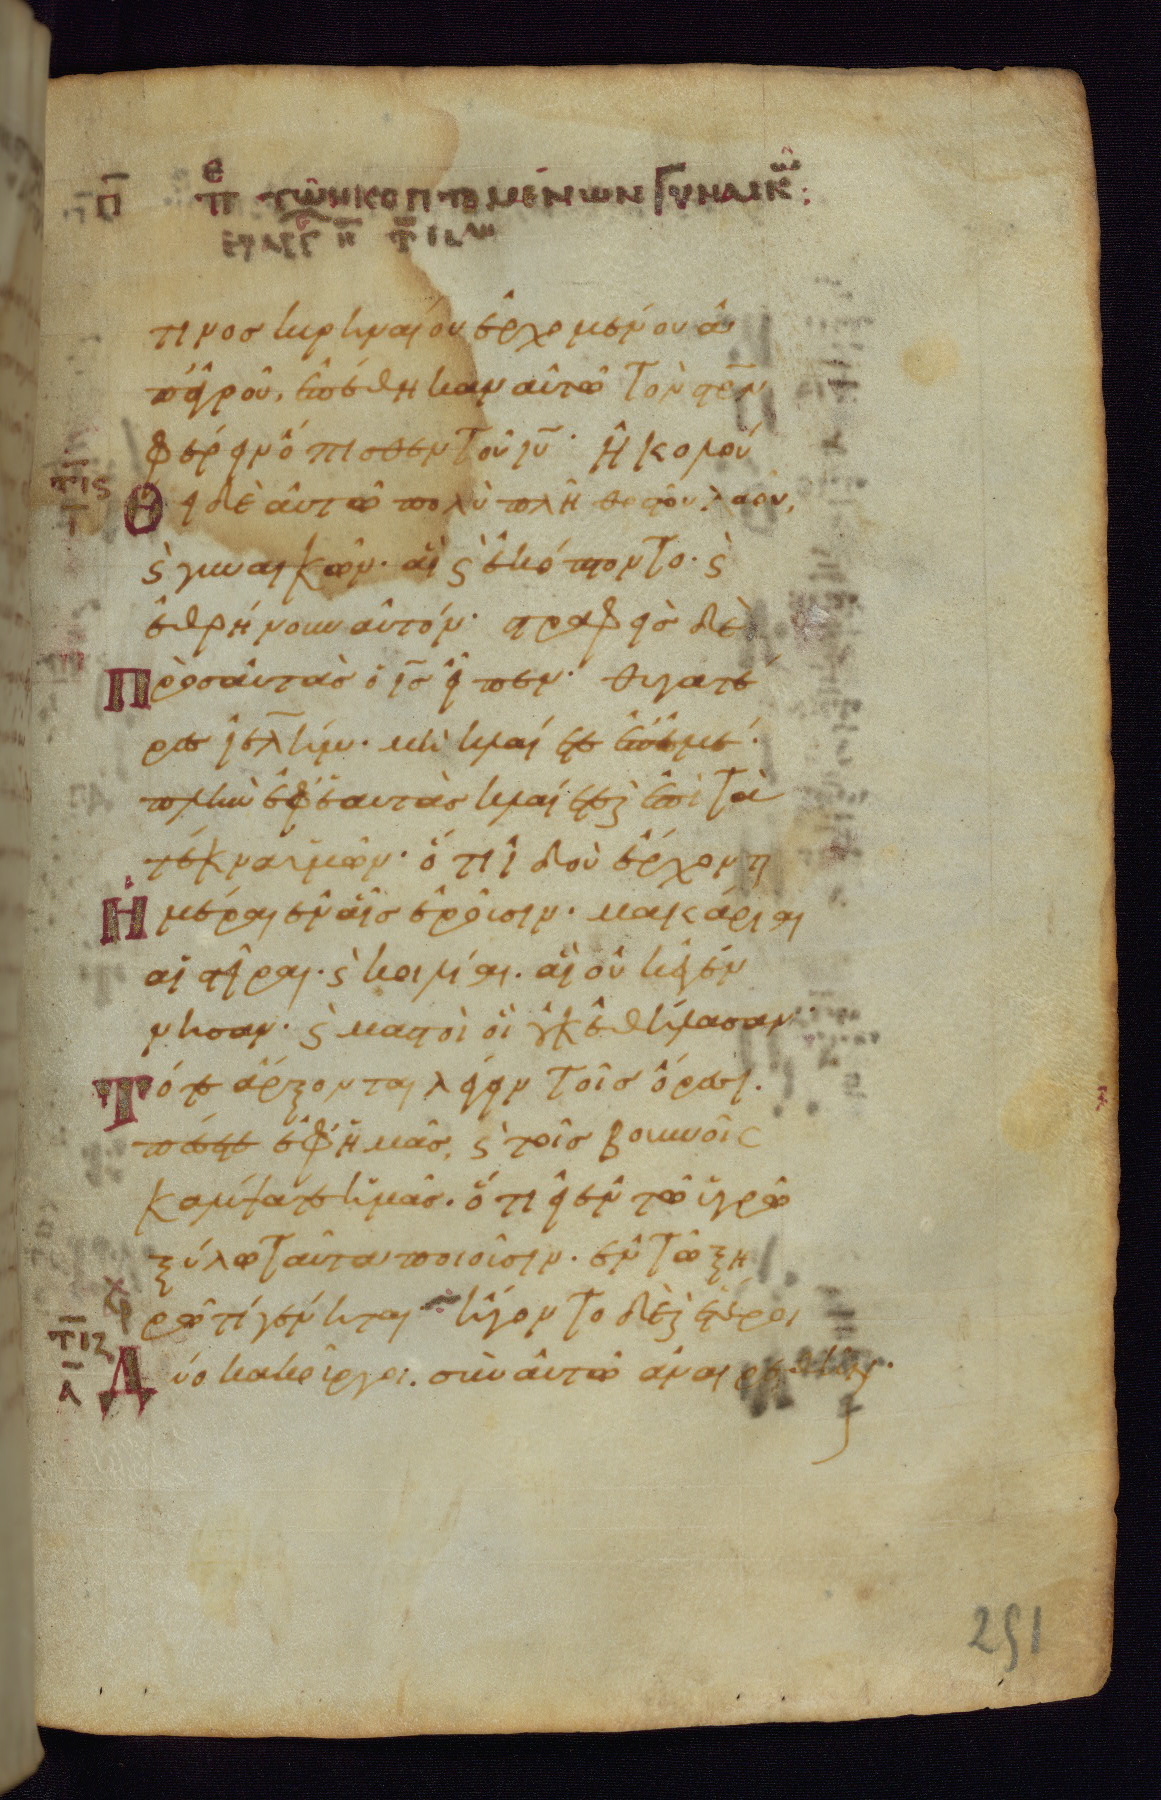 π πε τῶν κοπτομένων γυναικῶν:
τινοσ κυρηναίου ἐρχομένου ἀ
π᾿ ἀγροῦ, ἐπέθηκαν αὐτῶ τὸν σ̅ρ̅ν̅
φέρειν ὄπισθεν τοῦ ι̅υ̅· ἠκολού
τ̅ι̅ς̅ θει δὲ αὐτῶ πολὺ πλῆθοσ τοῦ λαοῦ,
ϛ γυναικῶν· αἳ ϛ ἐκόπτοντο· ϛ
ἐθρήνουν αὐτόν· στραφεὶσ δὲ
Πρὸσ αὐτὰσ ὁ ι̅σ̅ εἶπεν· θυγατέ
ρεσ ι̅ε̅λ̅ήμ· μὴ κλαίετε ἐπ᾿ ἐμέ·
πλὴν ἐφ᾿ ἑαυτὰσ κλαίετε ϛ ἐπὶ τὰ
τέκνα ὑμῶν· ὅτι ἰδοὺ ἔρχονται
Ἡμέραι ἐν αἷσ ἐροῦσιν· μακάριαι
αἱ στεῖραι· ϛ κοιλίαι· αἳ οὐκ ἐγέν
νησαν· ϛ μαστοὶ οἳ οὐκ ἐθήλασαν·
Τότε ἄρξονται λέγειν τοῖσ ὄρεσι·
πέσετε ἐφ᾿ ἡμᾶσ, ϛ τοῖσ βουνοῖς
καλύψατε ἡμᾶσ· ὅτι εἰ ἐν τῶ ὑγρῶ
ξύλω ταῦτα ποιοῦσιν· ἐν τῶ ξη
ρῶ τί γένηται· ἤγοντο δὲ ϛ ἕτεροι
τ̅ι̅ζ̅ α Δύο κακοῦργοι· σὺν αὐτῶ ἀναιρεθῆναι·
251